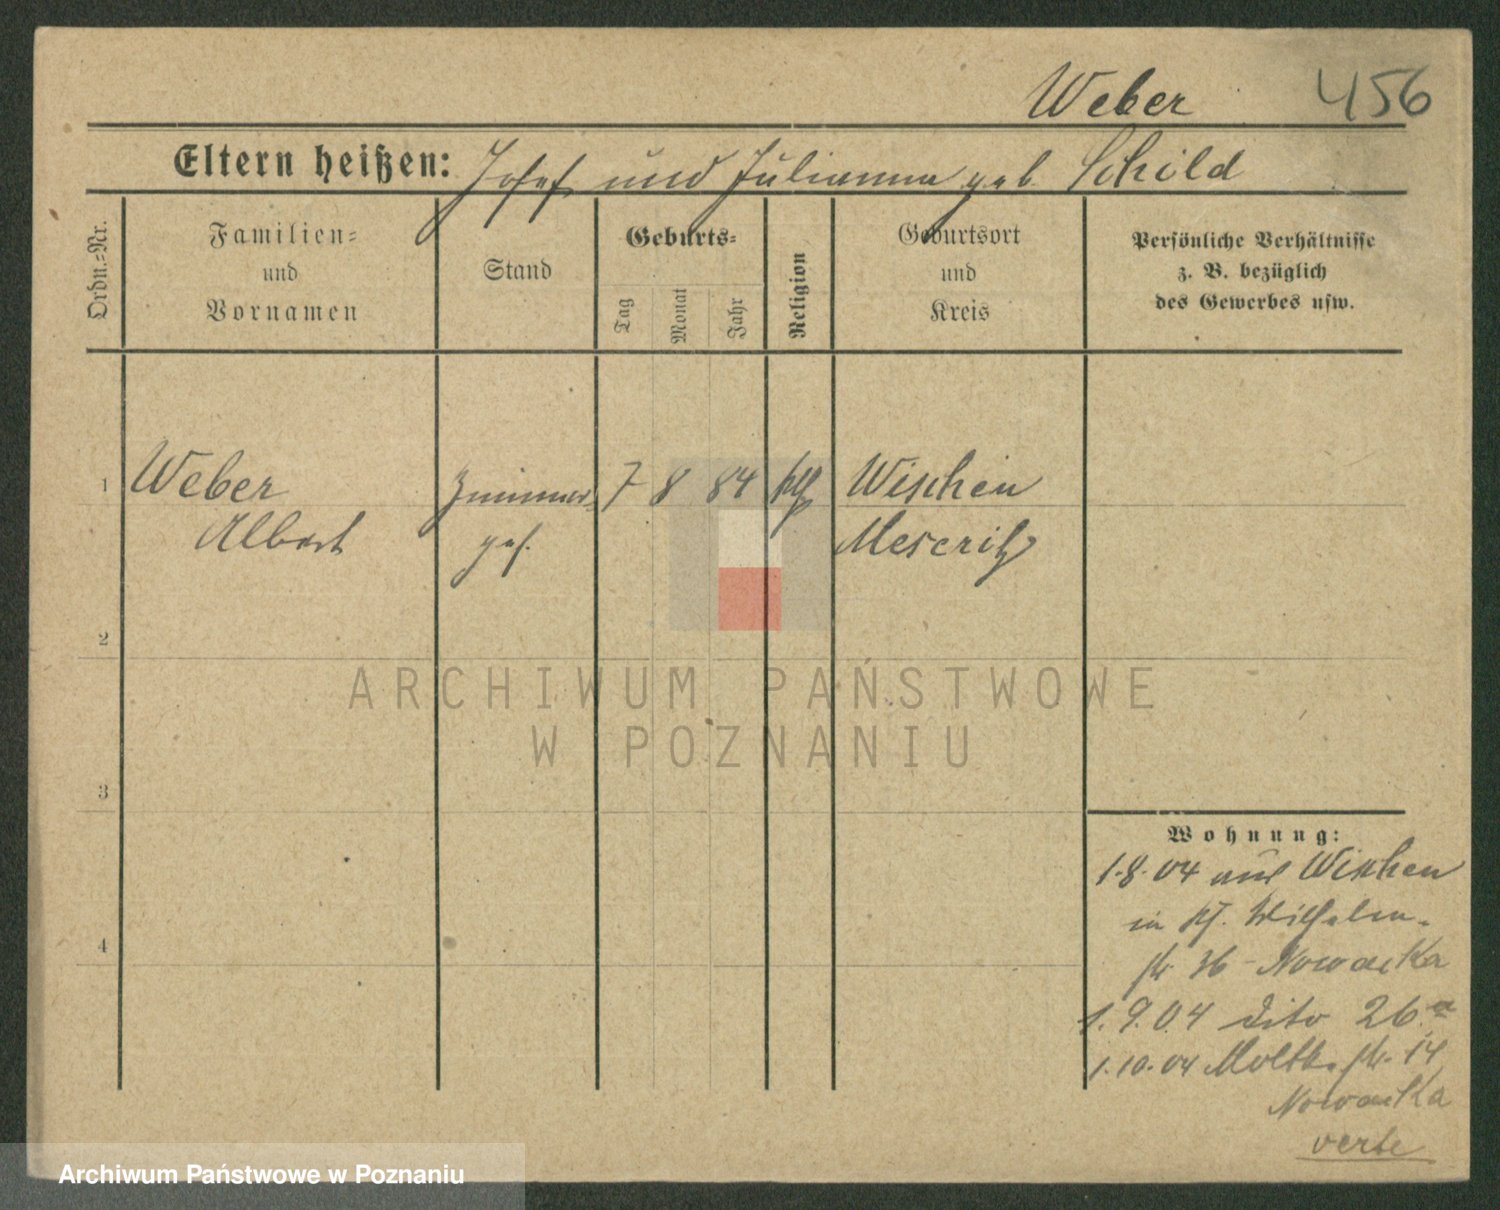 Weber 456
Eltern heißen: Josef und Julianna geb. Schild
Ordn.-Nr.
Familien-
und
Vornamen
Stand
Geburts-
Tag
Monat
Jahr
Religion
Geburtsort
und
Kreis
Persönliche Verhältnisse
z. B. bezüglich
des Gewerbes usw.
1 Weber Zimmer- 7 8 84 kth Wischen
Albert ges. Meseritz
2
3
4
Wohnung:
1.8.04 aus Wischen
in Wilhelm-
str 36 Nowacka
1.9.04 dito 26a
1.10.04 Moltkestr. 14
Nowacka
verte
ARCHIWUM PAŃSTWOWE
W POZNANIU
Archiwum Państwowe w Poznaniu